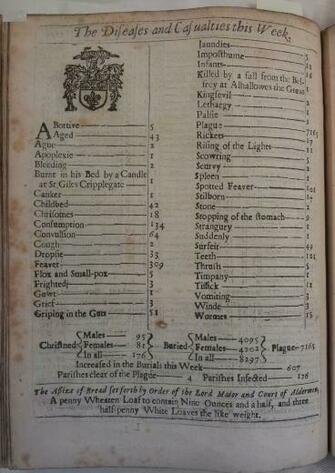 The Diseases and Casualties this Week.
Abortive 5
Aged 43
Ague 2
Apoplexie 1
Bleeding 2
Burnt in his Bed by a Candle
at St Giles Cripplegate 1
Canker 1
Childbed 42
Chrisomes 18
Consumption 134
Convulsion 64
Cough 2
Dropsie 33
Feaver 309
Flox and Small-pox 5
Frighted 3
Gowt 1
Grief 3
Griping in the Guts 51
Jaundies
Imposthume
Infants
Killed by a fall from the Bel-
frey at Alhallowes the Great
Kingsevil
Lethargy
Palsie
Plague 7165
Rickets
Rising of the Lights
Scowring
Scurvy
Spleen 1
Spotted Feaver 101
Stilborn
Stone
Stopping of the stomach 9
Strangury 1
Suddenly 1
Surfeit 49
Teeth 121
Thrush 5
Timpany 1
Tissick 11
Vomiting 3
Winde 3
Wormes
Christned Males 95 Females 81 In all 176
Buried Males 4095 Females 4202 In all 8297
Plague 7165
Increased in the Burials this Week 607
Parishes clear of the Plague 4 Parishes Infected 126
The Assize of Bread set forth by Order of the Lord Maior and Court of Aldermen,
A penny Wheaten Loaf to contain Nine Ounces and a half, and three
half-penny White Loaves the like weight.